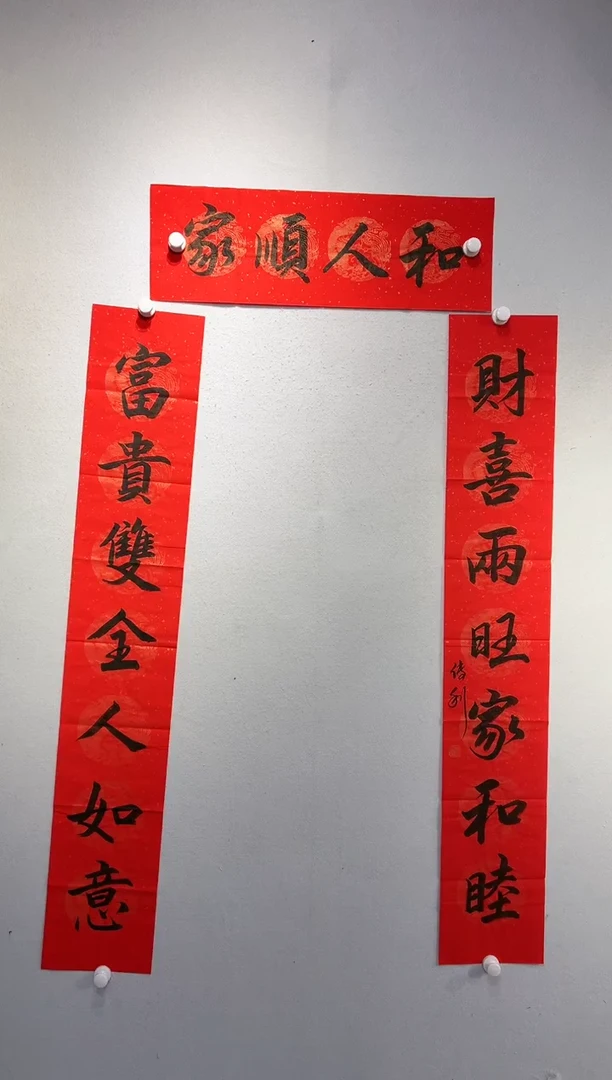 家順人和
富貴雙全人如意
財喜兩旺家和睦